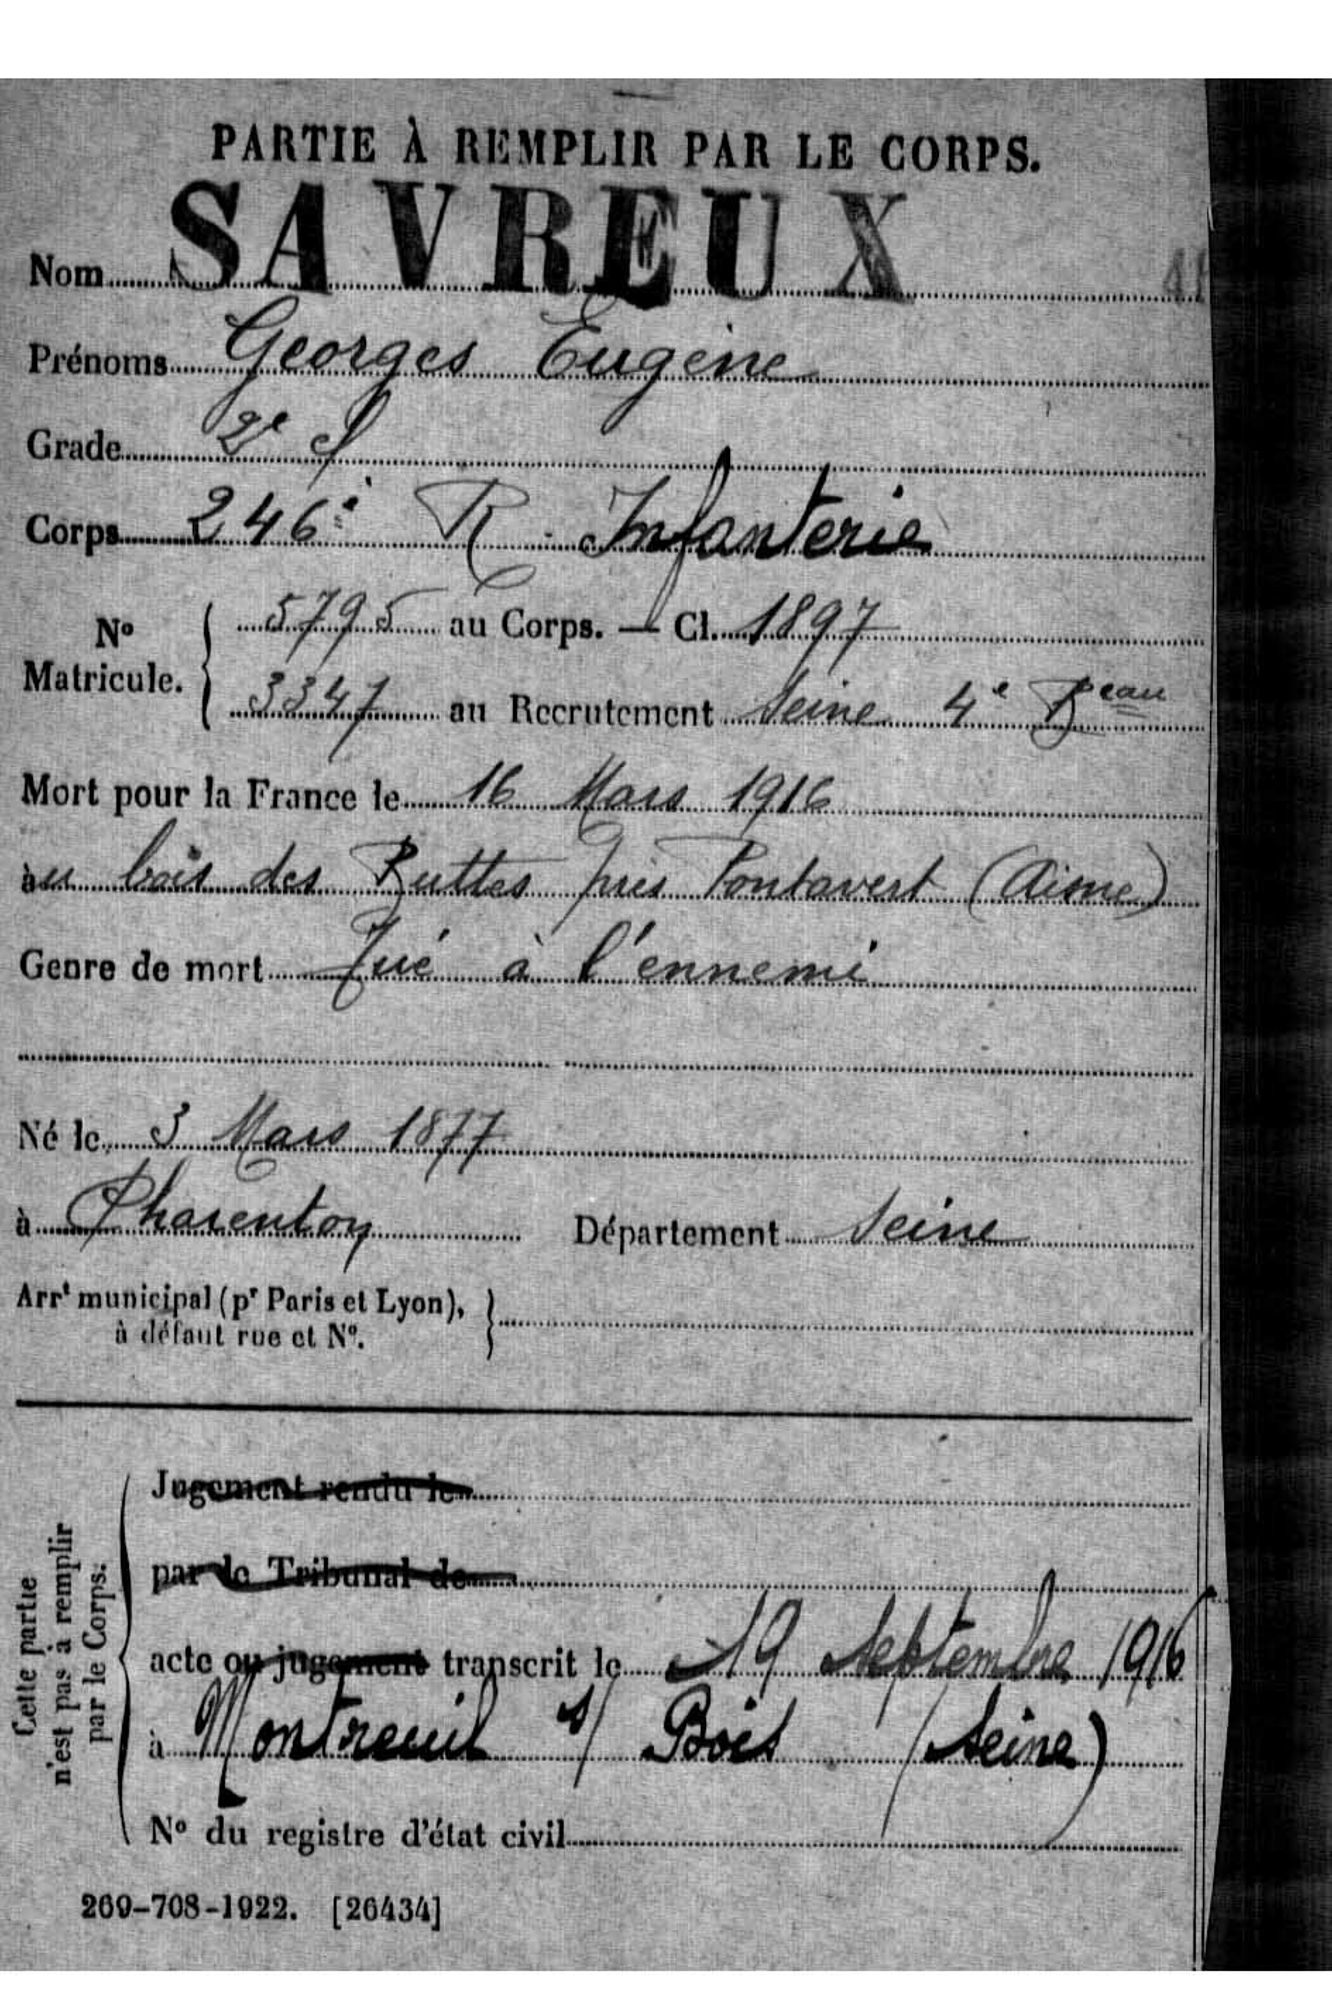 PARTIE À REMPLIR PAR LE CORPS.
Nom SAVREUX
Prénoms Georges Eugène
Grade 2e
Corps 246e R. Infanterie
No Matricule. 5795 au Corps. — Cl. 1897
3347 au Recrutement Seine 4e Beau
Mort pour la France le 16 Mars 1916
au bois des Buttes près Pontavert (Aisne)
Genre de mort Tué à l'ennemi
Né le 3 Mars 1877
à Charenton Département Seine
Arrt municipal (pr Paris et Lyon),
à défaut rue et No.
Cette partie
n'est pas à remplir
par le Corps.
Jugement rendu le
par le Tribunal de
acte ou jugement transcrit le 19 Septembre 1916
à Montreuil s/ Bois (Seine)
No du registre d'état civil
269-708-1922. [26434]